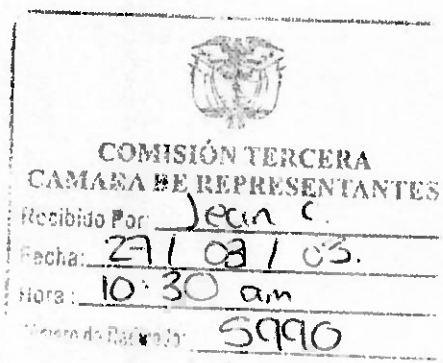 COMISIÓN TERCERA
CAMARA DE REPRESENTANTES
Recibido Por: Jean C.
Fecha: 27 / 03 / 03.
Hora: 10:30 am
Número de Radicado: 5990